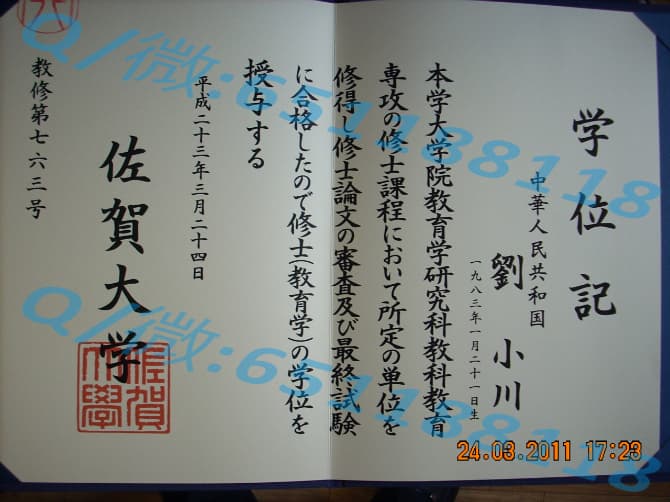 学位記
中華人民共和国
劉小川
一九八三年一月二十一日生
本学大学院教育学研究科教科教育
専攻の修士課程において所定の単位を
修得し修士論文の審査及び最終試験
に合格したので修士(教育学)の学位を
授与する
平成二十三年三月二十四日
佐賀大学
佐賀大學
教修第七六三号
Q/微:651188118
Q/微:651188118
24.03.2011 17:23